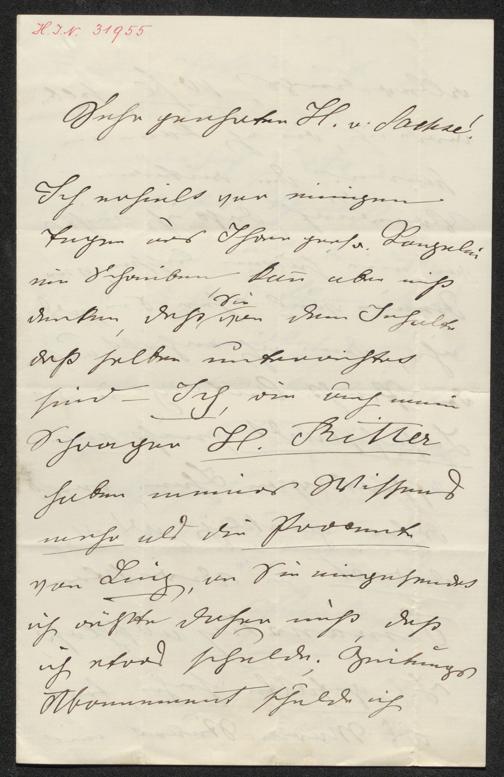 H.I.N. 31955
Sehr geehrter H. v. Sachse!
Ich erhielt vor einigen
Tagen aus Ihrer geeh. Kanzelei
ein Schreiben kann aber nicht
denken, dass Sie von dem Inhalte
deß selben unterrichtet
sind – Ich, wie auch mein
Schwager H. Ritter
haben meines Wissens
mehr als die Procente
von Linz, an Sie eingesendet
ich wüßte daher nicht, daß
ich etwas schulde, Zeitungs
Abonnement schulde ich